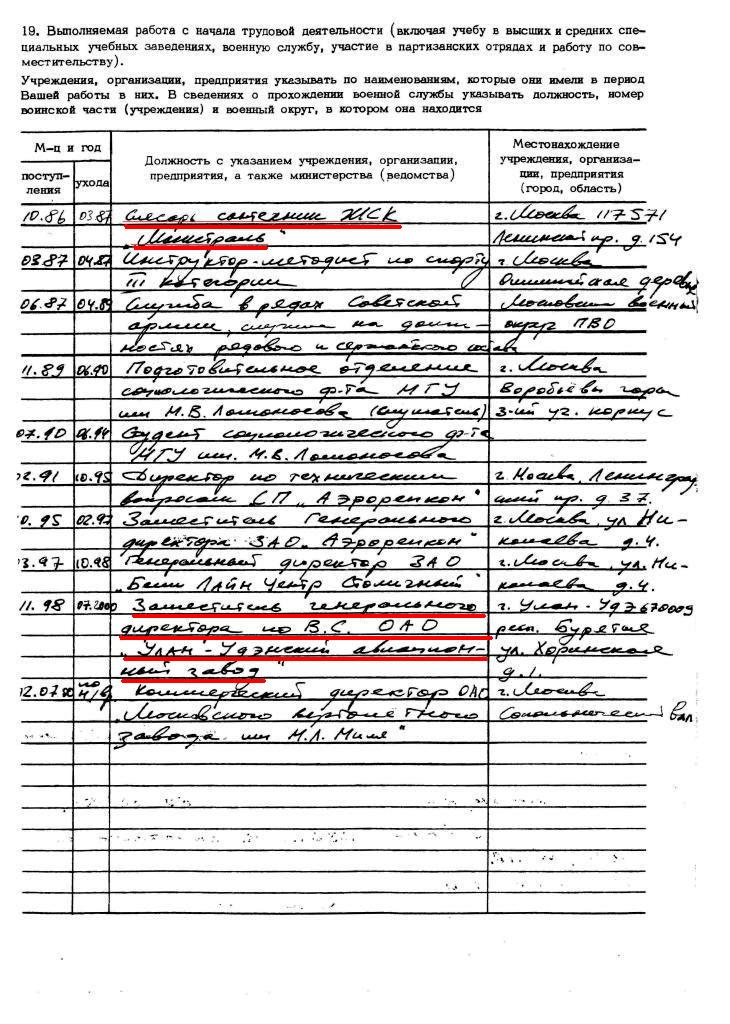 19. Выполняемая работа с начала трудовой деятельности (включая учебу в высших и средних спе-
циальных учебных заведениях, военную службу, участие в партизанских отрядах и работу по сов-
местительству).
Учреждения, организации, предприятия указывать по наименованиям, которые они имели в период
Вашей работы в них. В сведениях о прохождении военной службы указывать должность, номер
воинской части (учреждения) и военный округ, в котором она находится
М-ц и год
поступ-
ления
ухода
Должность с указанием учреждения, организации,
предприятия, а также министерства (ведомства)
Местонахождение
учреждения, организа-
ции, предприятия
(город, область)
10.86 03.87 Слесарь сантехник ЖСК г. Москва 117571
"Магистраль" Ленинский пр. д. 154
03.87 04.87 Инструктор-методист по спорту г. Москва
III категории Олимпийская деревня
06.87 04.89 Служба в рядах Советской Московский военный
армии, служил на долж- округ ПВО
ностях рядового и сержантского состава
11.89 06.90 Подготовительное отделение г. Москва
социологического ф-та МГУ Воробьёвы горы
им М.В. Ломоносова (слушатель) 3-ий уч. корпус
07.90 06.94 Студент социологического ф-та
МГУ им. М.В. Ломоносова
02.91 10.95 Директор по техническим г. Москва, Ленинград
вопросам СП "Аэрорепкон" ский пр. д. 37.
10.95 02.97 Заместитель Генерального г. Москва, ул Ни-
директора ЗАО "Аэрорепкон" колаева д. 4.
03.97 10.98 Генеральный директор ЗАО г. Москва, ул. Ни-
Лайн Центр Столичный" колаева д. 4.
11.98 07.2000 Заместитель генерального г. Улан-Удэ 670009
директора по В.С. ОАО респ. Бурятия
"Улан-Удэнский авиацион- ул. Хоринская
ный завод" д. 1.
по н/в Коммерческий директор ОАО г. Москва
"Московского вертолетного Сокольнический вал
завода им М.Л. Миля"